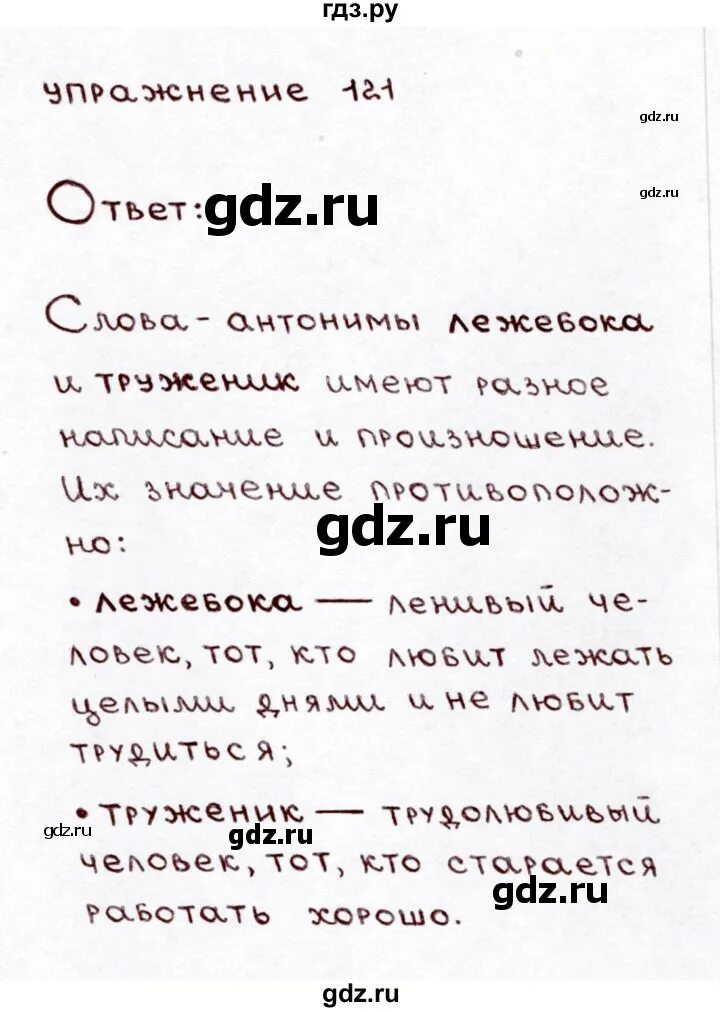 гдз.ру
упражнение 121
gdz.ru
gdz.ru
Ответ: gdz.ru
Слова - антонимы лежебока
и труженик имеют разное
написание и произношение.
Их значение противополож-
gdz.ru
но:
• лежебока — ленивый че-
ловек, тот, кто любит лежать
целыми днями и не любит
трудиться;
• труженик — трудолюбивый
gdz.ru
gdz.ru
человек, тот, кто старается
gdz.ru
работать хорошо.
gdz.ru